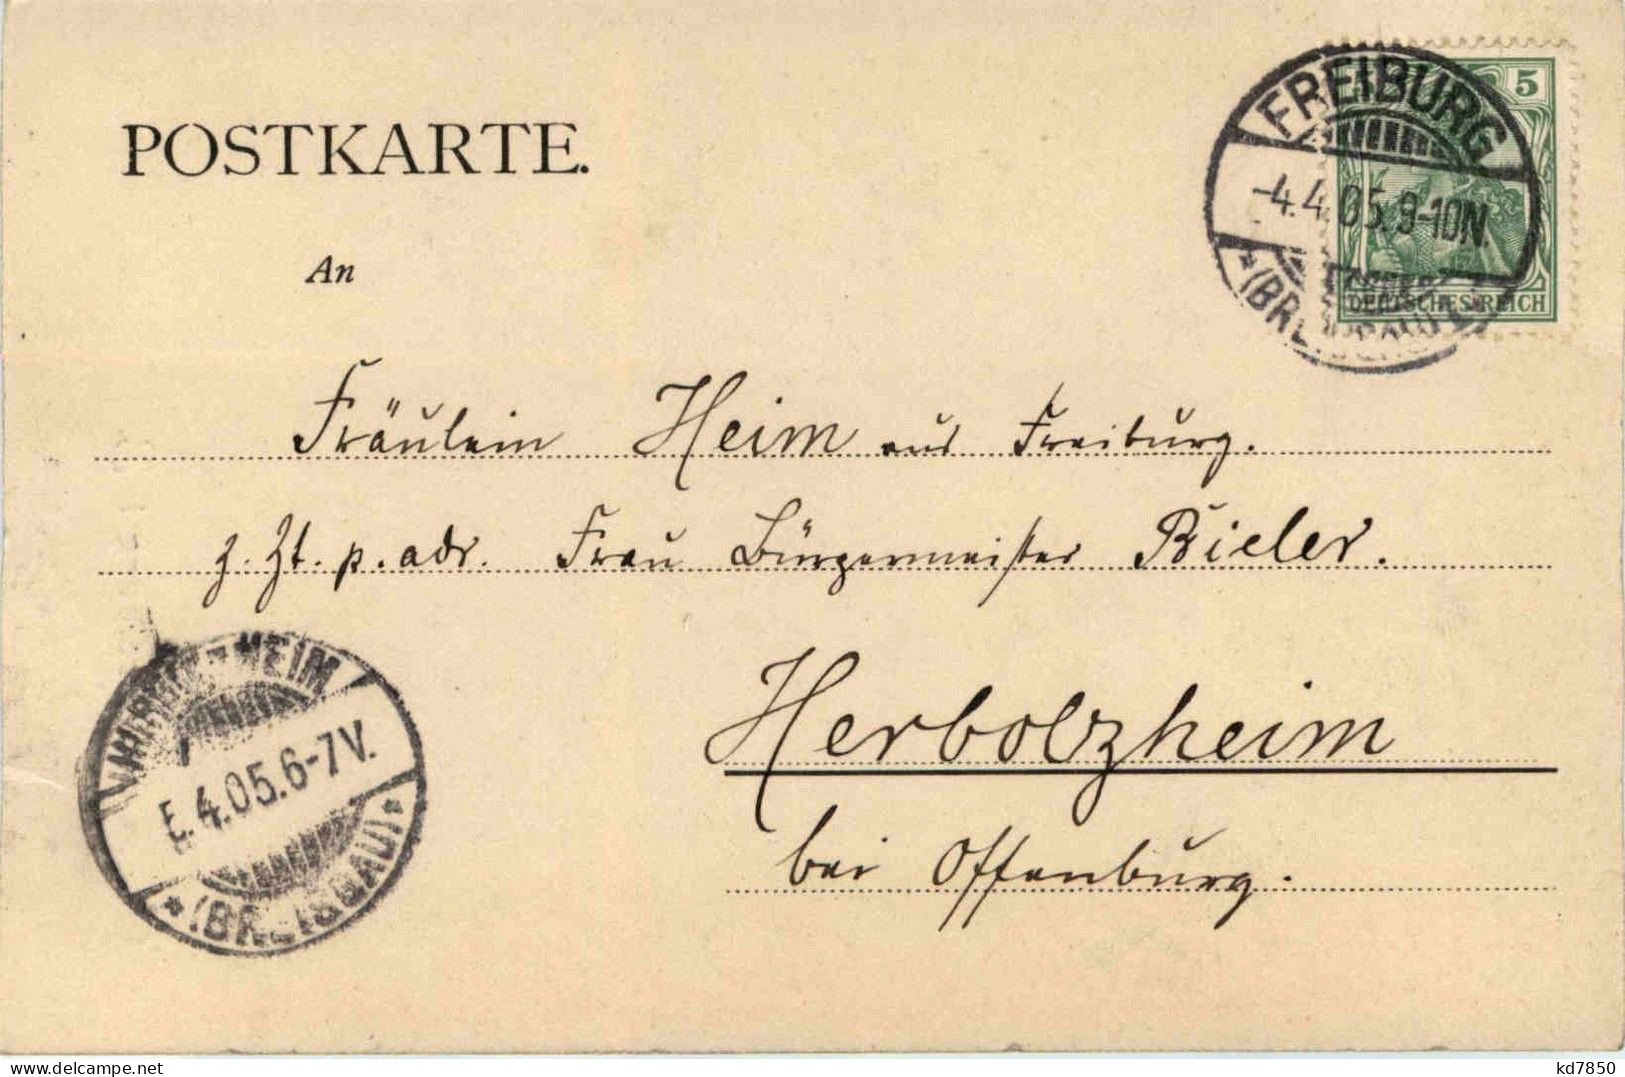 POSTKARTE.
FREIBURG
5
-4.4.05.9-10N.
*(BREISGAU)
DEUTSCHES REICH
An
Fräulein Heim aus Freiburg.
z. Zt. p. adr. Frau Bürgermeister Bieler.
Herbolzheim
bei Offenburg.
4.05.6-7V.
*(BREISGAU)*
Visit Delcampe.net
kd7850